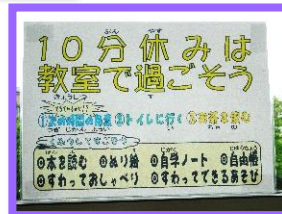 10分休みは
教室で過ごそう
①次の時間の用意 ②トイレに行く ③お茶を飲む
◎本を読む ◎ぬり絵 ◎自学ノート ◎自由帳
◎すわっておしゃべり ◎すわってできるあそび